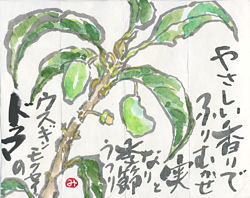 やさしい香りで
ふりむかせ
実
なりと
季節
うつり
ウスギモクセイの
ドラマ
み